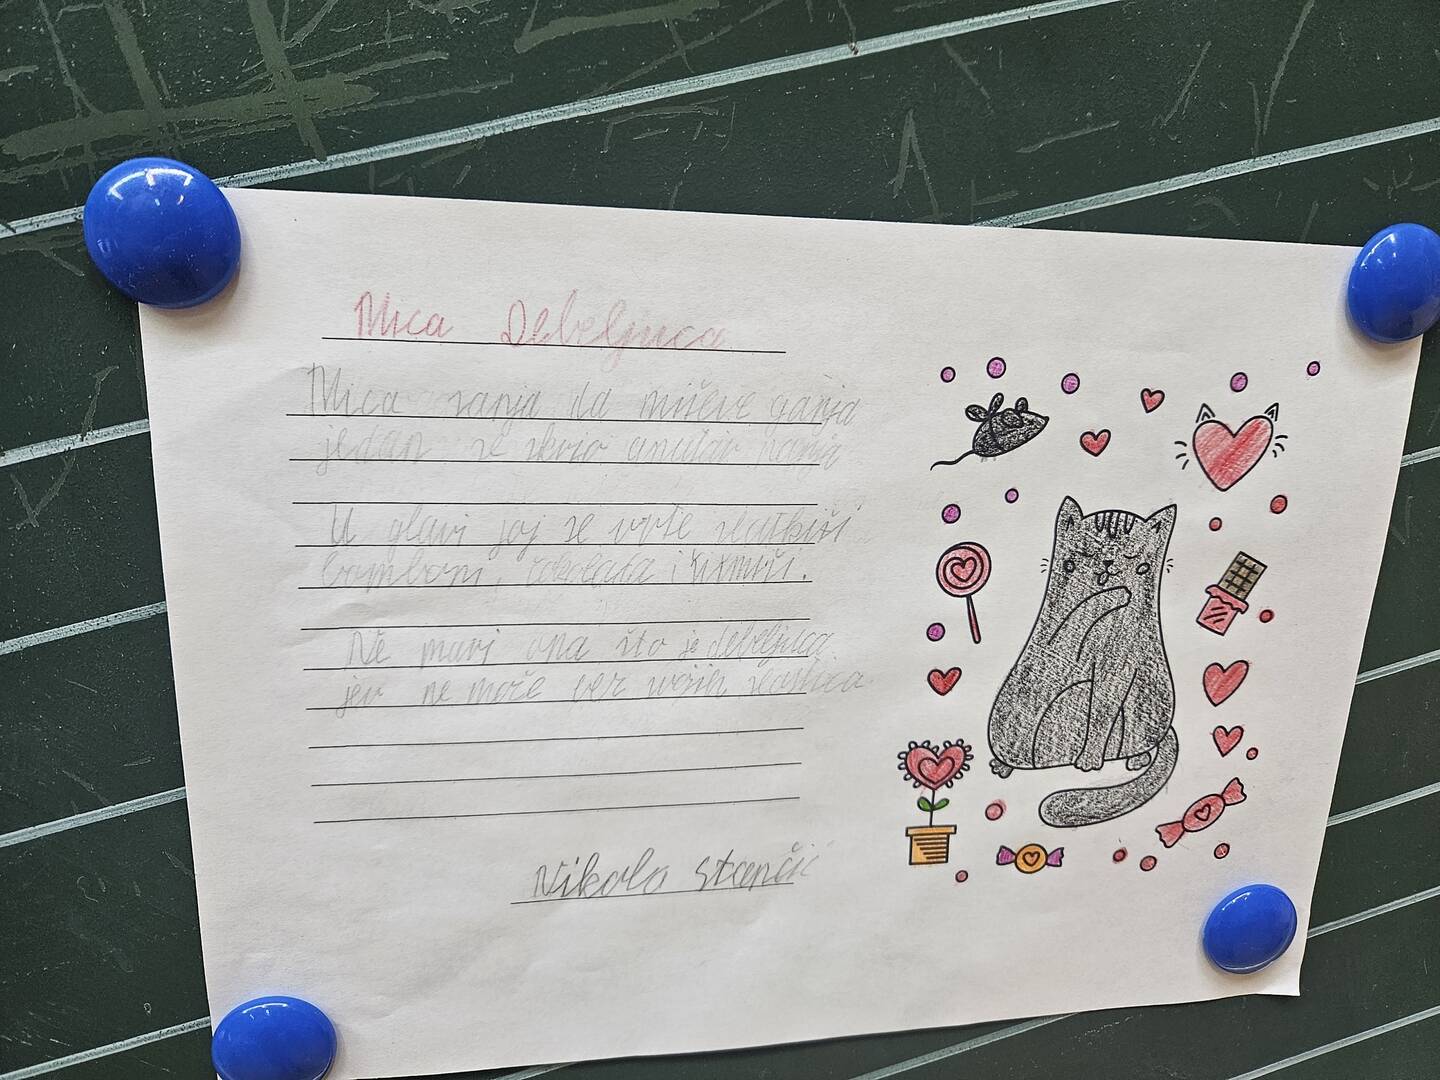 Mica Debeljuca
Mica sanja da miševe ganja
jedan se skrio unutar panja
U glavi joj se vrte slatkiši
bomboni, čokolada i
Ne mari ona što je debeljuca
jer ne može bez svojih slastica
Nikola Stančić